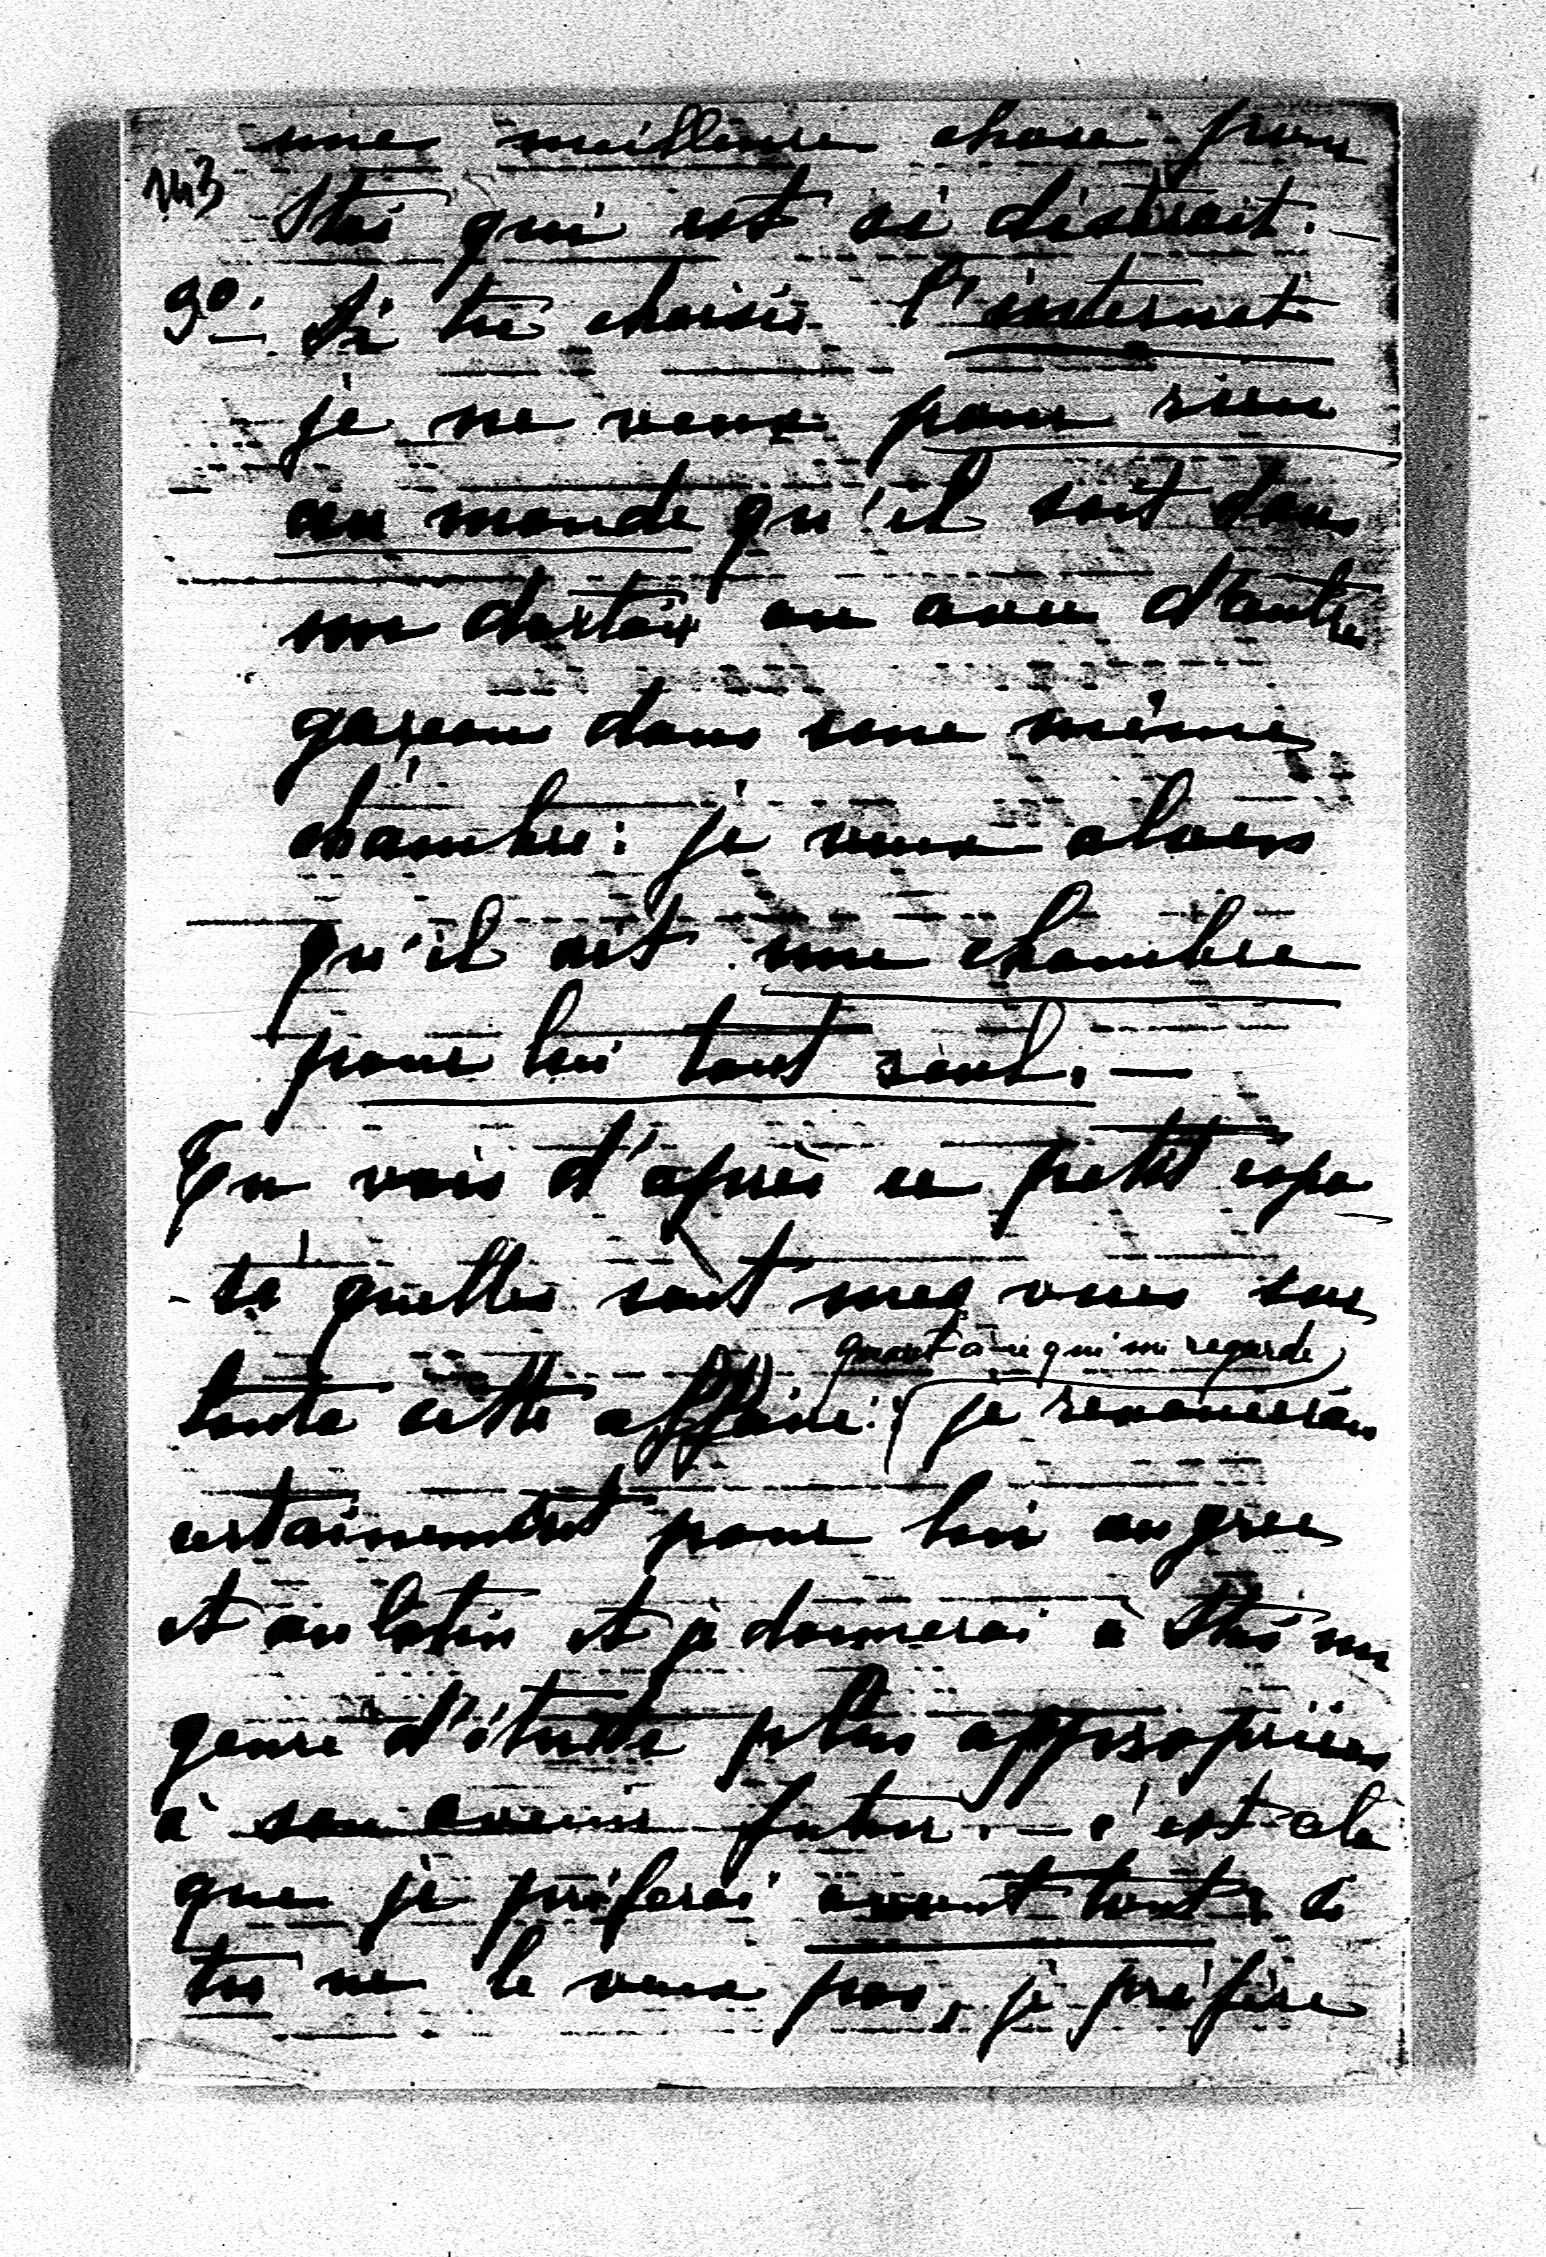 une meilleure chose pour
143
Stoï qui est si distrait. —
9º. Si tu choisis l'internat
je ne veux pour rien
au monde qu'il soit dans
un dortoir ou avec d'autres
garçons dans une même
chambre: je veux alors
qu'il ait une chambre
pour lui tout seul. —
Tu vois d'après ce petit expo-
-sé quelles sont mes vues sur
quant à ce qui me regarde
toute cette affaire: je renoncerais
certainement pour lui au grec
et au latin et je donnerai à Stoï un
genre d'étude plus appropriées
à son avenir futur. — c'est cela
que je préferai avant tout; si
tu ne le veux pas, je préfère